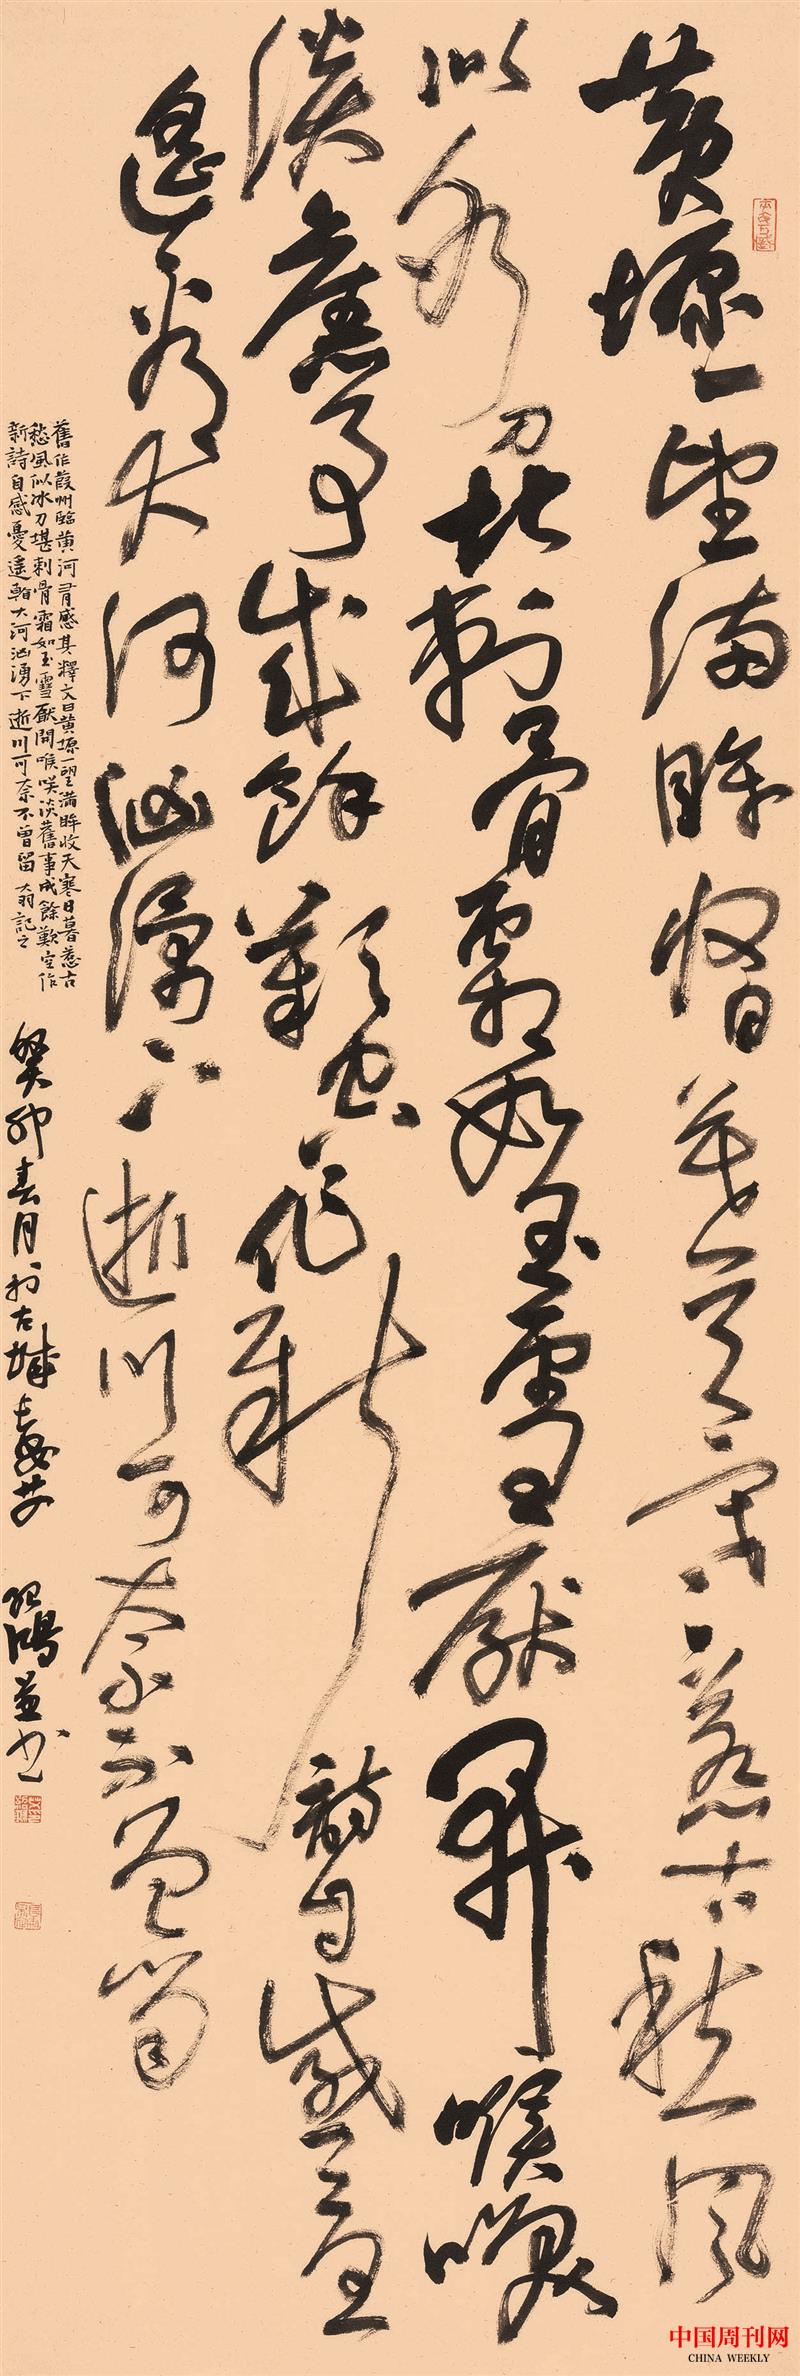 黄塬一望滿眸收日暮天寒惹古愁風
似冰刀堪刺骨霜如玉雪厭開喉咲
淡舊事成餘歎空作新詩自感憂
遥看大河汹湧下逝川可奈不曾留
舊作葭州臨黄河有感其釋文曰黄塬一望滿眸收天寒日暮惹古
愁風似冰刀堪刺骨霜如玉雪厭開喉咲淡舊事成餘歎空作
新詩自感憂遥看大河汹湧下逝川可奈不曾留 翁記之
癸卯春月於古城長安 鴻並书
中国周刊网
CHINA WEEKLY